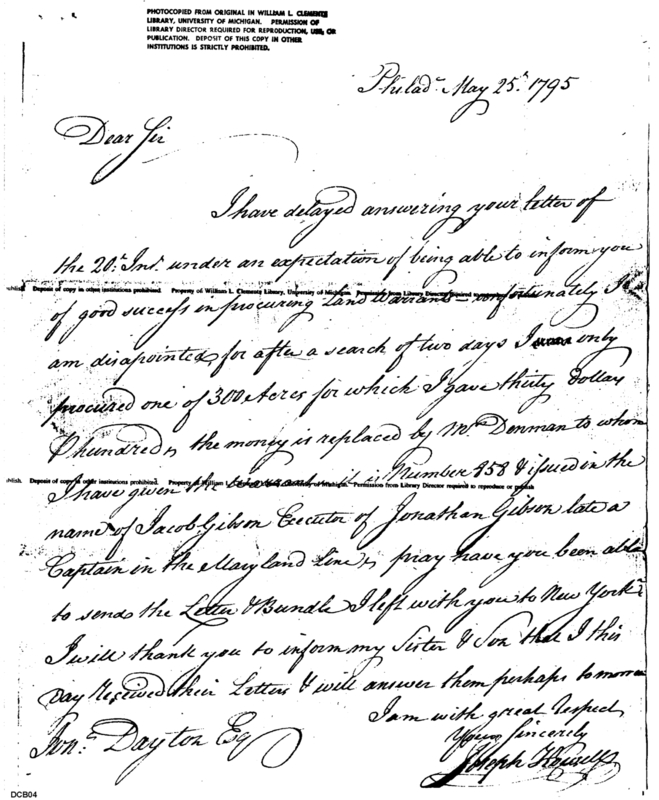 PHOTOCOPIED FROM ORIGINAL IN WILLIAM L. CLEMENTS
LIBRARY, UNIVERSITY OF MICHIGAN. PERMISSION OF
LIBRARY DIRECTOR REQUIRED FOR REPRODUCTION, USE, OR
PUBLICATION. DEPOSIT OF THIS COPY IN OTHER
INSTITUTIONS IS STRICTLY PROHIBITED.
Philad. May 25. 1795
Dear Sir
I have delayed answering your letter of
the 20. Inst. under an expectation of being able to inform you
Deposit of copy in other institutions prohibited. Property of William L. Clements Library, University of Michigan. Permission from Library Director required to
of good success in procuring Land Warrants - unfortunately I
am disapointed, for after a search of two days I only
procured one of 300 Acres for which I gave thirty Dollars
P hundred, the money is replaced by Mr. Denman to whom
Deposit of copy in other institutions prohibited. Property of William L. Clements Library, University of Michigan. Permission from Library Director required to reproduce or publish
I have given the warrant, it is Number 858 & issued in the
name of Jacob Gibson Executor of Jonathan Gibson late a
Captain in the Maryland Line, pray have you been able
to send the Letter & Bundle I left with you to New York
I will thank you to inform my Sister & Son that I this
Day Received their Letters & will answer them perhaps tomorrow
I am with great respect
Yours Sincerely
Joseph Howell
Jon. Dayton Esq
DCB04